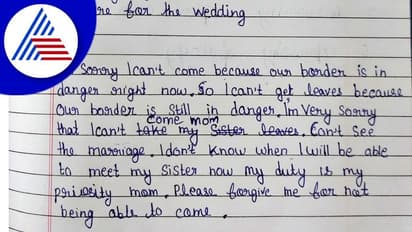 re for the wedding
Sorry I can't come because our border is in
danger right now. So I can't get leaves because
Our border is still in danger. I'm Very Sorry
that I can't take my Sister leaves. Can't See
come mom
the marriage. I don't know when I will be able
to meet my sister now my duty is my
priority mom. Please forgive me for not
being able to come.